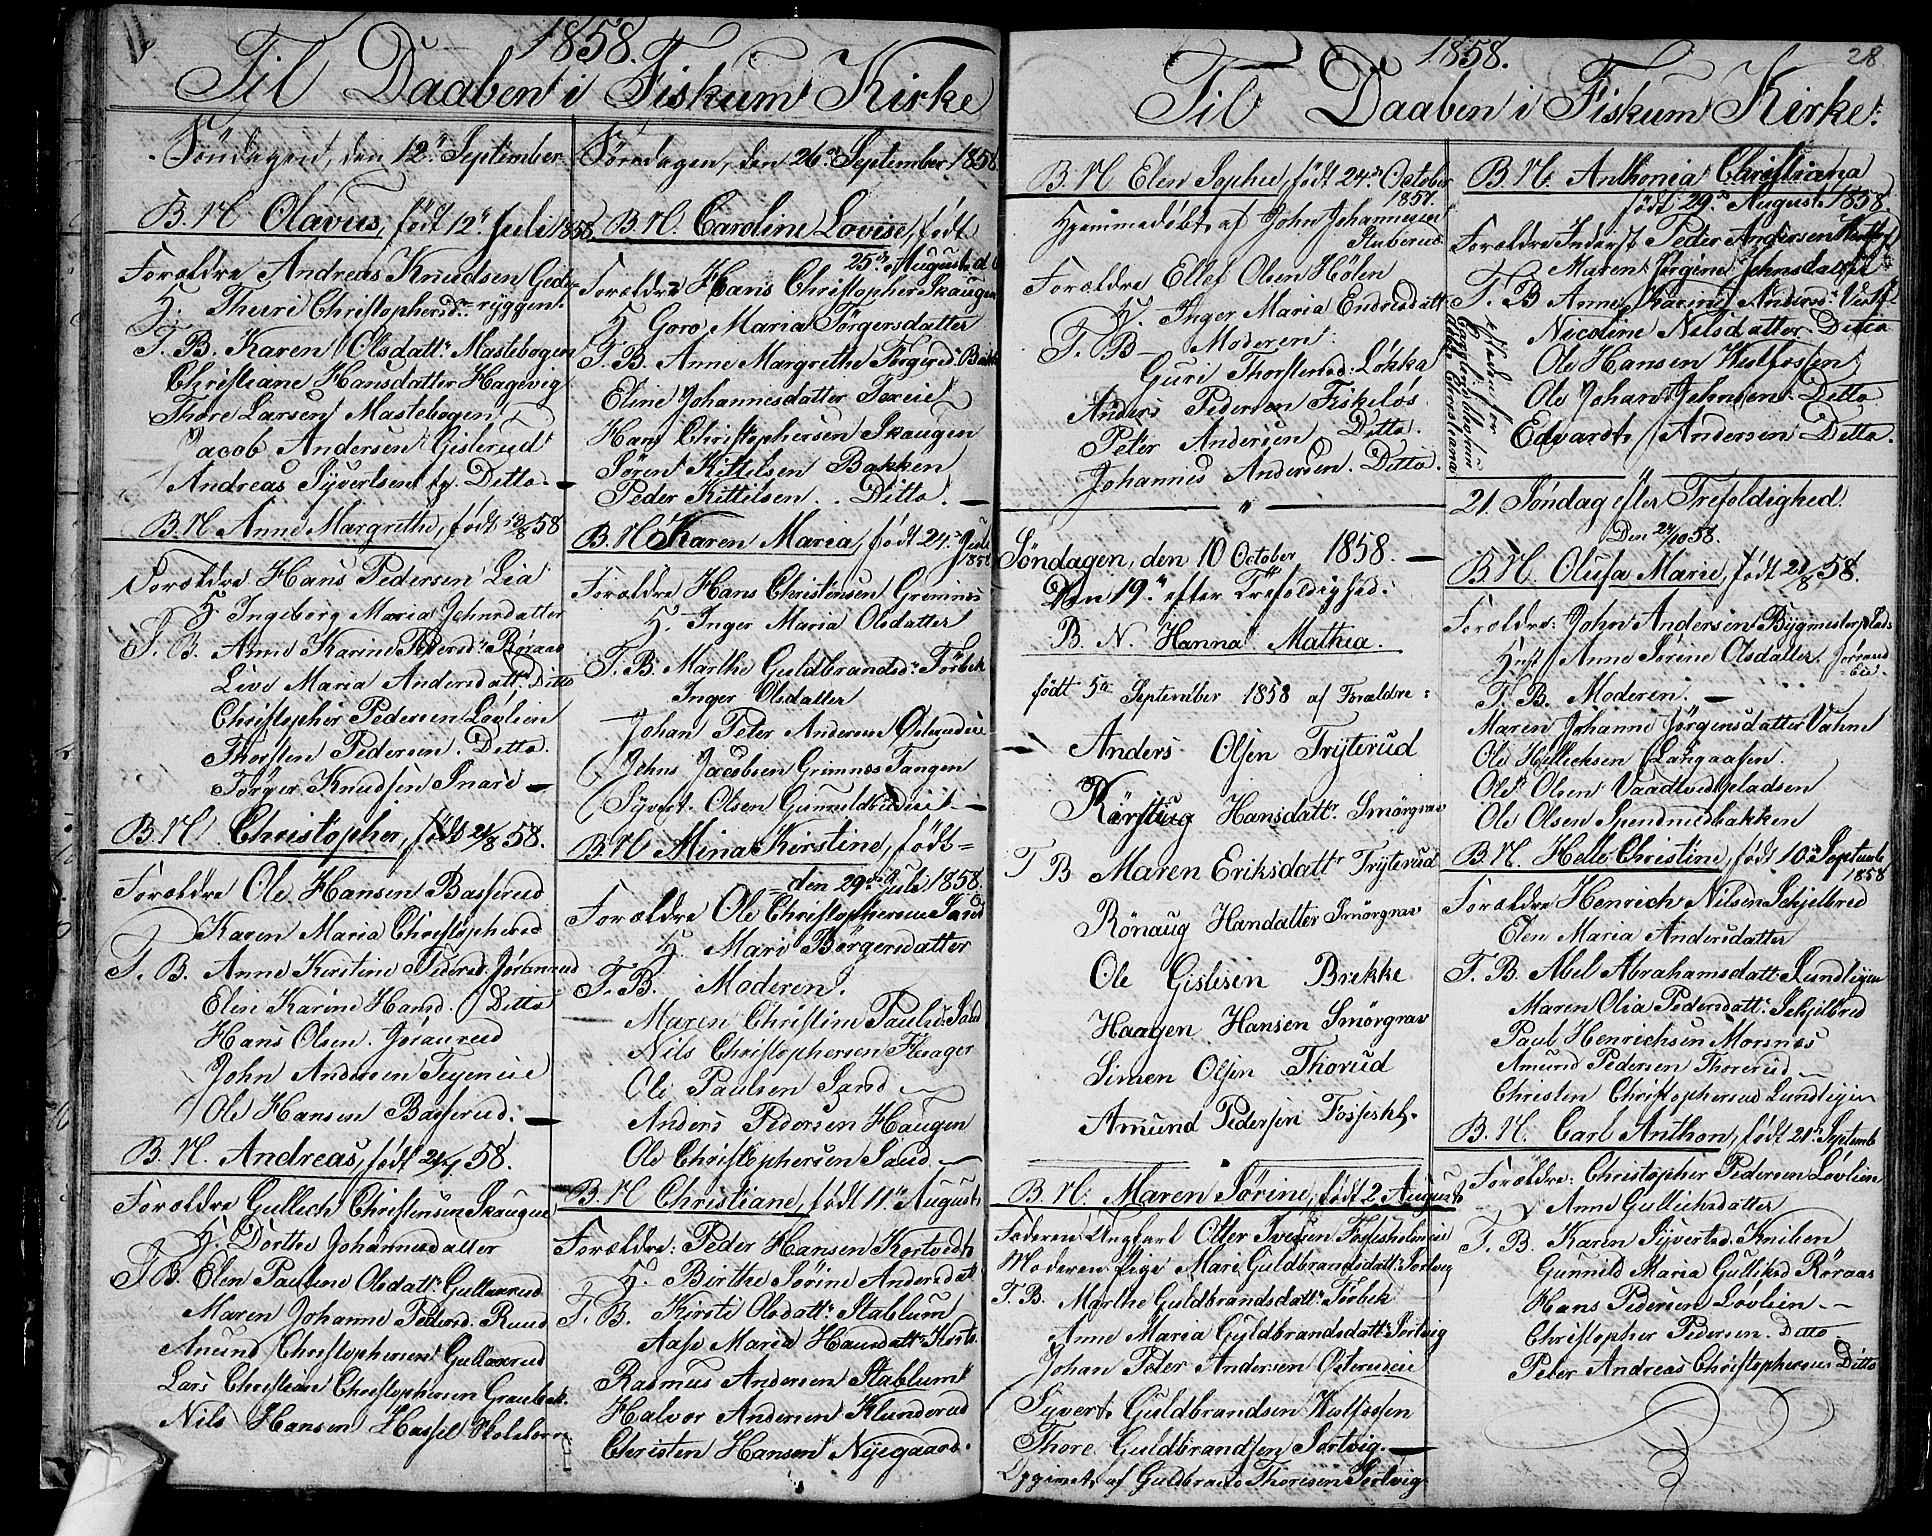 1858.
Til Daaben i Fiskum Kirke
Söndagen, den 12te September
B. N. Olavus, født 12te Juli 1858
Forældre Andreas Knudsen Gede-
H. Thuri Christophersdr. ryggen
T. B. Karen Olsdattr. Mastebogen
Christiane Hansdatter Hagevig
Thore Larsen Mastebogen
Jacob Andersen Gislerud
Andreas Syvertsen fr. Ditto
B. N. Anne Margrethe, født 13/8 58
Forældre Hans Pedersen Lia
H. Ingeborg Maria Jehnsdatter
T. B. Anne Karine Pedersd. Røraas
Live Maria Andersdatt. Ditto
Christopher Pedersen Løvlien
Thorsten Pedersen. Ditto.
Törger Knudsen Snare
B. N. Christopher, født 21/8 58.
Forældre Ole Hansen Basserud
Karen Maria Christophersd
T. B. Anne Kirstine Pedersd. Jøranrud
Elen Karine Hansd. Ditto
Hans Olsen. Jøranrud
John Andersen Tegeneie
Ole Hansen Basserud.
B. N. Andreas, født 21/7 58.
Forældre Gullich Christensen Skaugen
H. Dorthe Johannesdatter
T. B. Elen Pauline Olsdatt. Gullaxrud
Maren Johanne Pedersd. Ruud
Anund Christophersen Gullaxrud
Lars Christian Christophersen Graubek.
Nils Hansen Hassel
Söndagen, den 26de September 1858
B. N. Caroline Lovise, født
25de August d.
Forældre Hans Christophers. Skaugen
H. Goro Maria Törgersdatter
T. B. Anne Margrethe Törgersd. Bakk
Eline Johannesdatter
Hans Christophersen Skaugen
Søren Kittilsen Bakken
Peder Kittilsen. . Ditto.
B. N. Karen Maria, født 24de Juli
1858
Forældre Hans Christensen Grimnes
H. Inger Maria Olsdatter
T. B. Marthe Guldbrandsd. Torbek
Inger Olsdatter
Johan Peter Andersen Østerudeie
Jehns Jacobsen Grimnes Tangen
Syvert. Olsen
B. N. Mina Kirstine, født
den 29de Juli 1858.
Forældre Ole Christophersen Sand
H. Mari Börgersdatter
T. B. Moderen.
Maren Christine Paulsd. Sand
Nils Christophersen Flesager
Ole Paulsen Sand
Anders Pedersen Haugen
Ole Christophersen Sand.
B. N. Christiane, født 11te August
Forældre: Peder Hansen Kortvedt
H. Birthe Sørine Andersdatt
T. B. Kirsti Olsdatt. Stablum
Aase Maria Hansdatt. Kortv.
Rasmus Andersen Stablum
Halvor Andersen Klunderud
Christen Hansen Nyegaard.
1858.
28
Til Daaben i Fiskum Kirke.
B. N Elen Sophie, født 24de October
1857.
Hjemmedøbt af John Johannesen
Stuberud
Forældre Ellef Olsen Hölen
H. Inger Maria Endresdatt
T. B. Moderen
Guri Thorstensd: Løkka
Anders Pedersen Fiskeløs
Peter Andersen Ditto.
Johannes Andersen. Ditto.
Söndagen, den 10 October 1858.
Den 19de efter Trefoldighed.
B. N. Hanna Mathea.
født 5te September 1858 af Forældre:
Anders Olsen Tryterud
Hansdattr. Smörgrav
T B Maren Eriksdattr Tryterud
Rönaug Handatter Smörgrav
Ole Gislesen Brekke
Haagen Hansen Smörgrav
Simen Olsen Thorud
Amund Pedersen Fossesh.
B. N. Maren Sørine, født 2 August
Faderen Ungkarl Otter Iversen Fossesholmeie
Moderen Pige Mari Guldbrandsdatt. Sortvig
T. B. Marthe Guldbrandsdatt. Torbek
Anne Maria Guldbrandsdatt. Sortvig
Johan Peter Andersen Østerudeie
Syvert Guldbrandsen Vestfossen
Thore Guldbrandsen Sortvig.
Opgivet af Guldbrand Thoresen Sortvig
B. N. Anthonia Christiana
født 29de August 1858.
Forældre Inderst Peder Andersen Vestfos
Maren Jørgine Jehnsdatter
T. B. Anne Karine Andersd. Vestf
Nicoline Nilsdatter. Ditto
Ole Hansen Vestfossen
Ole Johan Jehnsen Ditto
Edvardt Andersen Ditto.
21. Söndag efter Trefoldighed.
Den 24/10 58.
B. N. Olufa Marie, født 21/8 58.
Forældre: John Andersen Bygmesterplads
Hust Anne Sørine Olsdatter. Jøranrud
Eie.
T. B. Moderen.
Maren Johanne Jörgensdatter Vahne
Ole Hellicksen Langaasen.
Ole Olsen Vaadtvedtpladsen
Ole Olsen Spendmedbakken
B. N. Helle Christine, født 10de Septemb
1858
Forældre Henrich Nilsen Schjelbred
Elen Maria Andersdatter
T. B. Abel Abrahamsdatt. Lundtigen
Maren Olia Pedersdatt. Schjelbred
Paul Henrichsen Morsnes
Amund Pedersen Thorerud
Christen Christophersen Lundtigen
B. N. Carl Anthon, født 21de Septemb
Forældre: Christopher Pedersen Løvlien
Anne Gullichsdatter
T. B. Karen Syvertsd. Kniben
Gunnild Maria Gulliksd Røraas
Hans Pedersen Løvlien
Christopher Pedersen. Ditto
Peter Andreas Christophersen Ditto